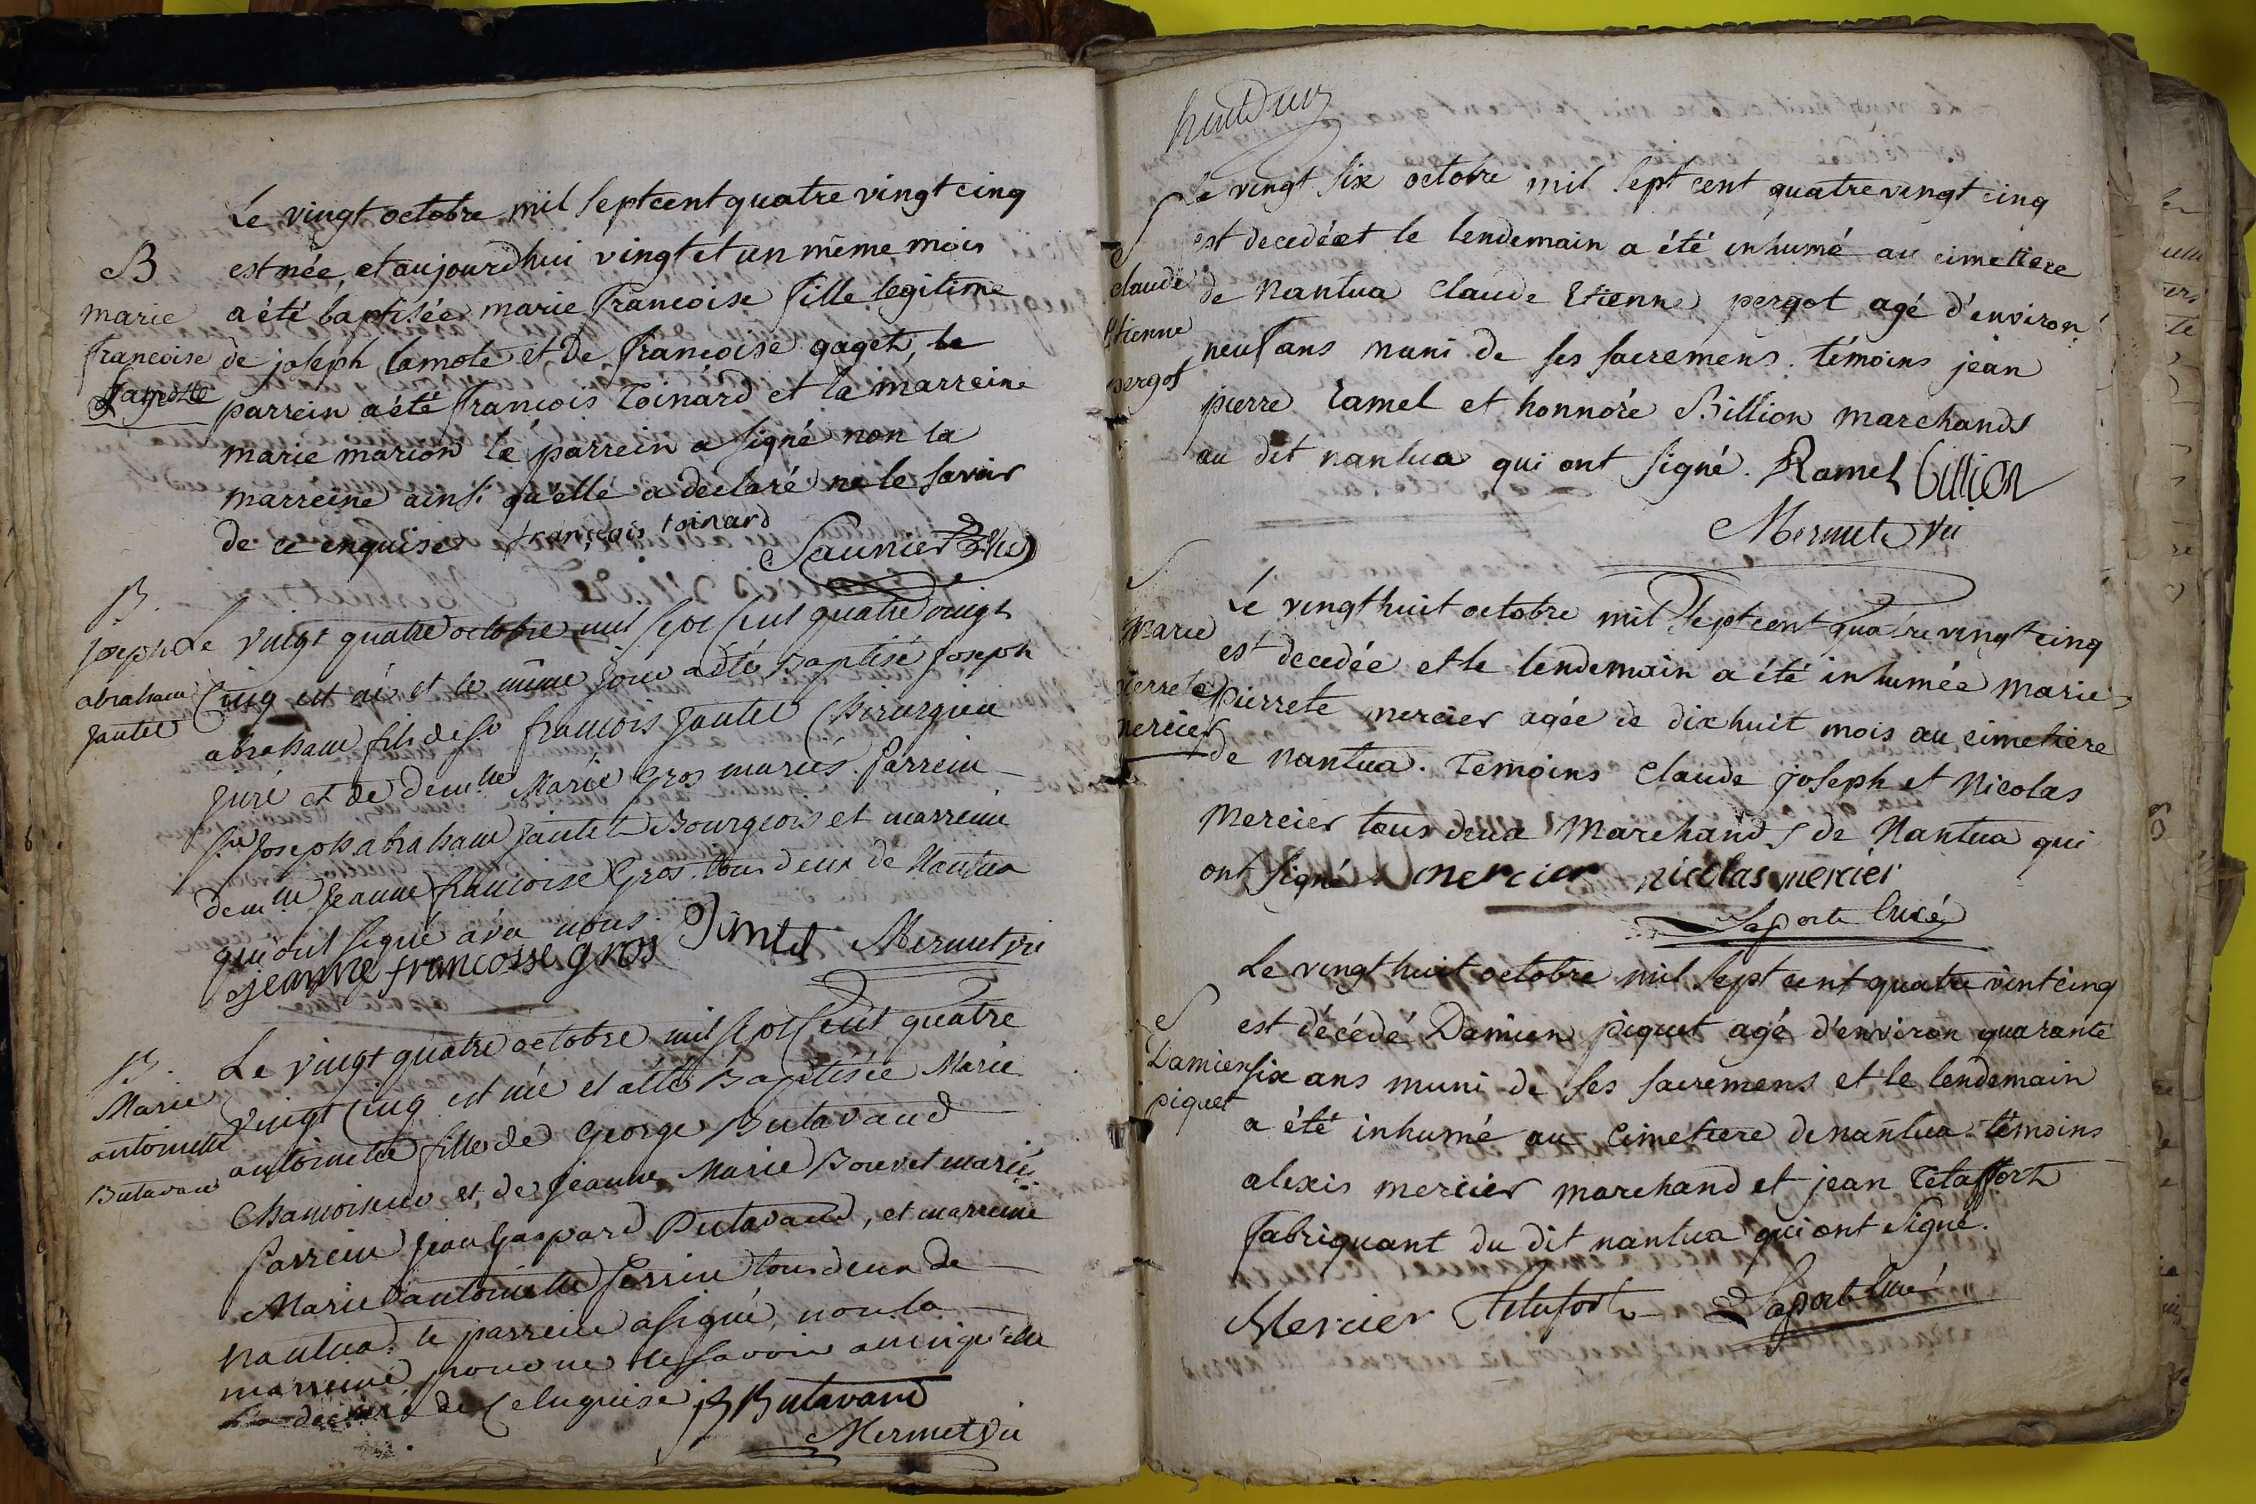 Le vingt octobre mil sept cent quatre vingt cinq
B
est née, et aujourdhui vingt et un même mois
marie
a été baptisée marie francoise fille legitime
francoise
de joseph lamote et De francoise gaget, le
Lamotte
parrein a été francois Toinard et la marreine
marie marion le parrein a signé non la
marreine ainsi qu'elle a declaré ne le savoir
de ce enquise françois toinard
Saunier
B.
joseph
abraham
jantet
Le vingt quatre octobre mil sept Cent quatre vingt
Cinq est né et le même jour a été Baptisé Joseph
abraham fils de sr françois jantet Chirurgien
juré et de demlle Marie Gros mariés. Parrein
Sr Joseph abraham jantet Bourgeois et marreine
demlle Jeanne francoise Gros. tous deux de Nantua
qui ont signé avec nous.
jeanne francosse gros Jantet Mermet vic
B.
Marie
antoinette
Butavand
Le vingt quatre octobre mil sept Cent quatre
vingt Cinq est née et a été Baptisée Marie
antoinette fille de George Butavand
Chamoiseur et de Jeanne Marie Bouvet mariés.
Parrein Jean Gaspard Butavand, et marreine
Marie antoinette Perrin tous deux de
Nantua. le parrein a signé, non la
marreine pour ne le savoir ainsi qu'elle
a declaré de Ce enquise. Butavand
Mermet vic
Le vingt six octobre mil sept cent quatre vingt cinq
S
claude
Etienne
pergot
est decedé et le lendemain a été inhumé au cimetiere
de Nantua Claude Etienne pergot agé d'environ
neuf ans muni de ses sacremens. témoins jean
pierre Ramel et honnoré Billion marchands
au dit nantua qui ont signé. Ramel Billion
Mermet vic
S
Marie
pierrete
mercier
Le vingt huit octobre mil sept cent quatre vingt cinq
est decedée et le lendemain a été inhumée marie
pierrete mercier agée de dix huit mois au cimetiere
de Nantua. Temoins Claude joseph et Nicolas
Mercier tous deux Marchands de Nantua qui
ont signé mercier nicolas mercier
Laporte Curé
S
Damien
piquet
Le vingt huit octobre mil sept cent quatre vint cinq
est décédé Damien piquet agé d'environ quarante
six ans muni de ses sacremens et le lendemain
a été inhumé au Cimetiere de nantua. témoins
alexis mercier marchand et jean Tetaffort
fabriquant du dit nantua qui ont signé.
Mercier Tetafort Laporte Curé